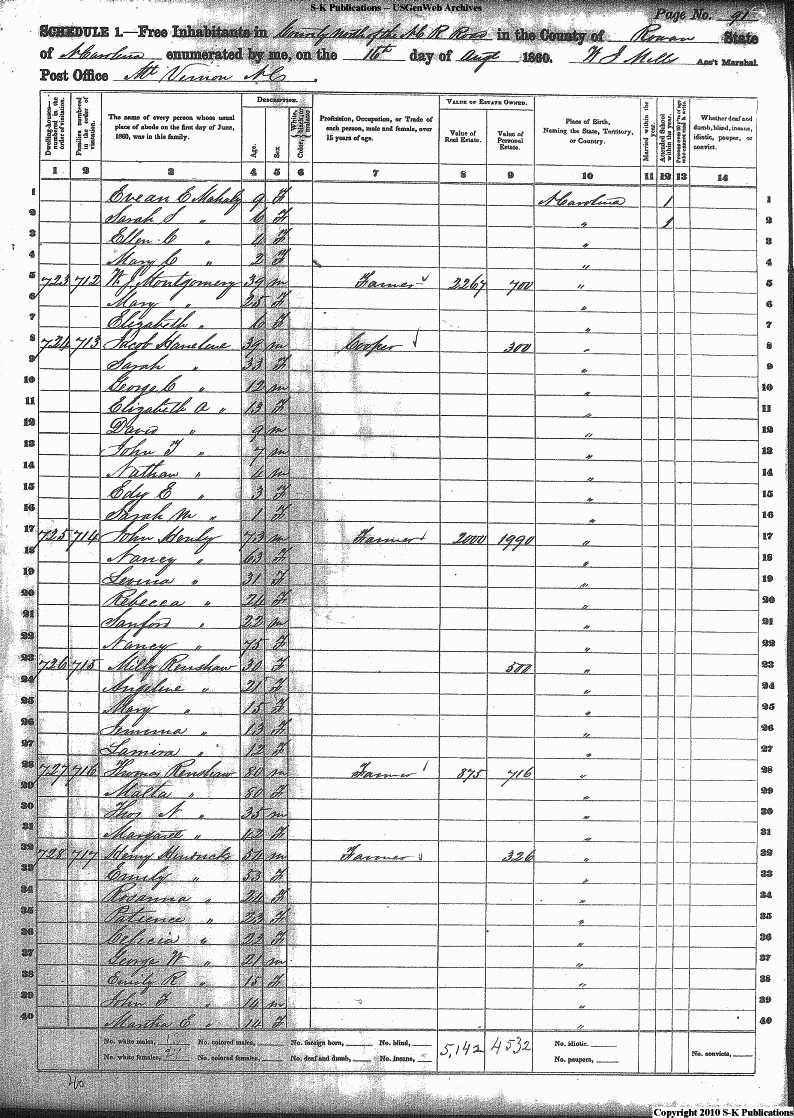 S-K Publications – USGenWeb Archives
Page No. 91
SCHEDULE 1.—Free Inhabitants in County North of the N C R Road in the County of Rowan State
of N Carolina enumerated by me, on the 16th day of Augt 1860. W J Mills Ass't Marshal.
Post Office Mt Vernon N C.
Dwelling-houses—numbered in the order of visitation.
Families numbered in the order of visitation.
The name of every person whose usual place of abode on the first day of June, 1860, was in this family.
DESCRIPTION.
Age.
Sex
Color, White, black, or mulatto
Profession, Occupation, or Trade of each person, male and female, over 15 years of age.
VALUE OF ESTATE OWNED.
Value of Real Estate.
Value of Personal Estate.
Place of Birth, Naming the State, Territory, or Country.
Married within the year.
Attended School within the year.
Persons over 20 y'rs of age who cannot read & write.
Whether deaf and dumb, blind, insane, idiotic, pauper, or convict.
1 2 3 4 5 6 7 8 9 10 11 12 13 14
1 E Mahaly 9 F N Carolina 1 1
2 Sarah S " 6 F " 1 2
3 Ellen C " 4 F " 3
4 Mary C " 2 F " 4
5 723 712 W J Montgomery 39 m Farmer 2267 700 " 5
6 Mary " 25 F " 6
7 Elizabeth " 6 F " 7
8 724 713 Jacob Haneline 39 m Cooper 300 " 8
9 Sarah " 33 F " 9
10 George C " 12 m " 10
11 Elizabeth A " 13 F " 11
12 David " 9 m " 12
13 John T " 7 m " 13
14 Nathan " 4 m " 14
15 Edy E " 3 F " 15
16 Sarah M " 1 F " 16
17 725 714 John Henly 73 m Farmer 2000 1990 " 17
18 Nancy " 63 F " 18
19 Levina " 31 F " 19
20 Rebecca " 24 F " 20
21 Sanford " 22 m " 21
22 Nancy " 75 F " 22
23 726 715 Milly Renshaw 30 F 500 " 23
24 Angeline " 21 F " 24
25 Mary " 15 F " 25
26 Jemima " 13 F " 26
27 Lamira " 12 F " 27
28 727 716 Thomas Renshaw 80 m Farmer 875 716 " 28
29 Malta " 80 F " 29
30 Thos N " 35 m " 30
31 Margaret " 42 F " 31
32 728 717 Henry Hendricks 54 m Farmer 326 " 32
33 Emily " 53 F " 33
34 Rosanna " 24 F " 34
35 Patience " 23 F " 35
36 " 22 F " 36
37 George W " 21 m " 37
38 Emily R " 15 F " 38
39 John F " 14 m " 39
40 Martha E " 14 F " 40
No. white males, No. colored males, No. foreign born, No. blind, 5,142 4532 No. idiotic,
No. white females, No. colored females, No. deaf and dumb, No. insane, No. paupers, No. convicts,
40
Copyright 2010 S-K Publications